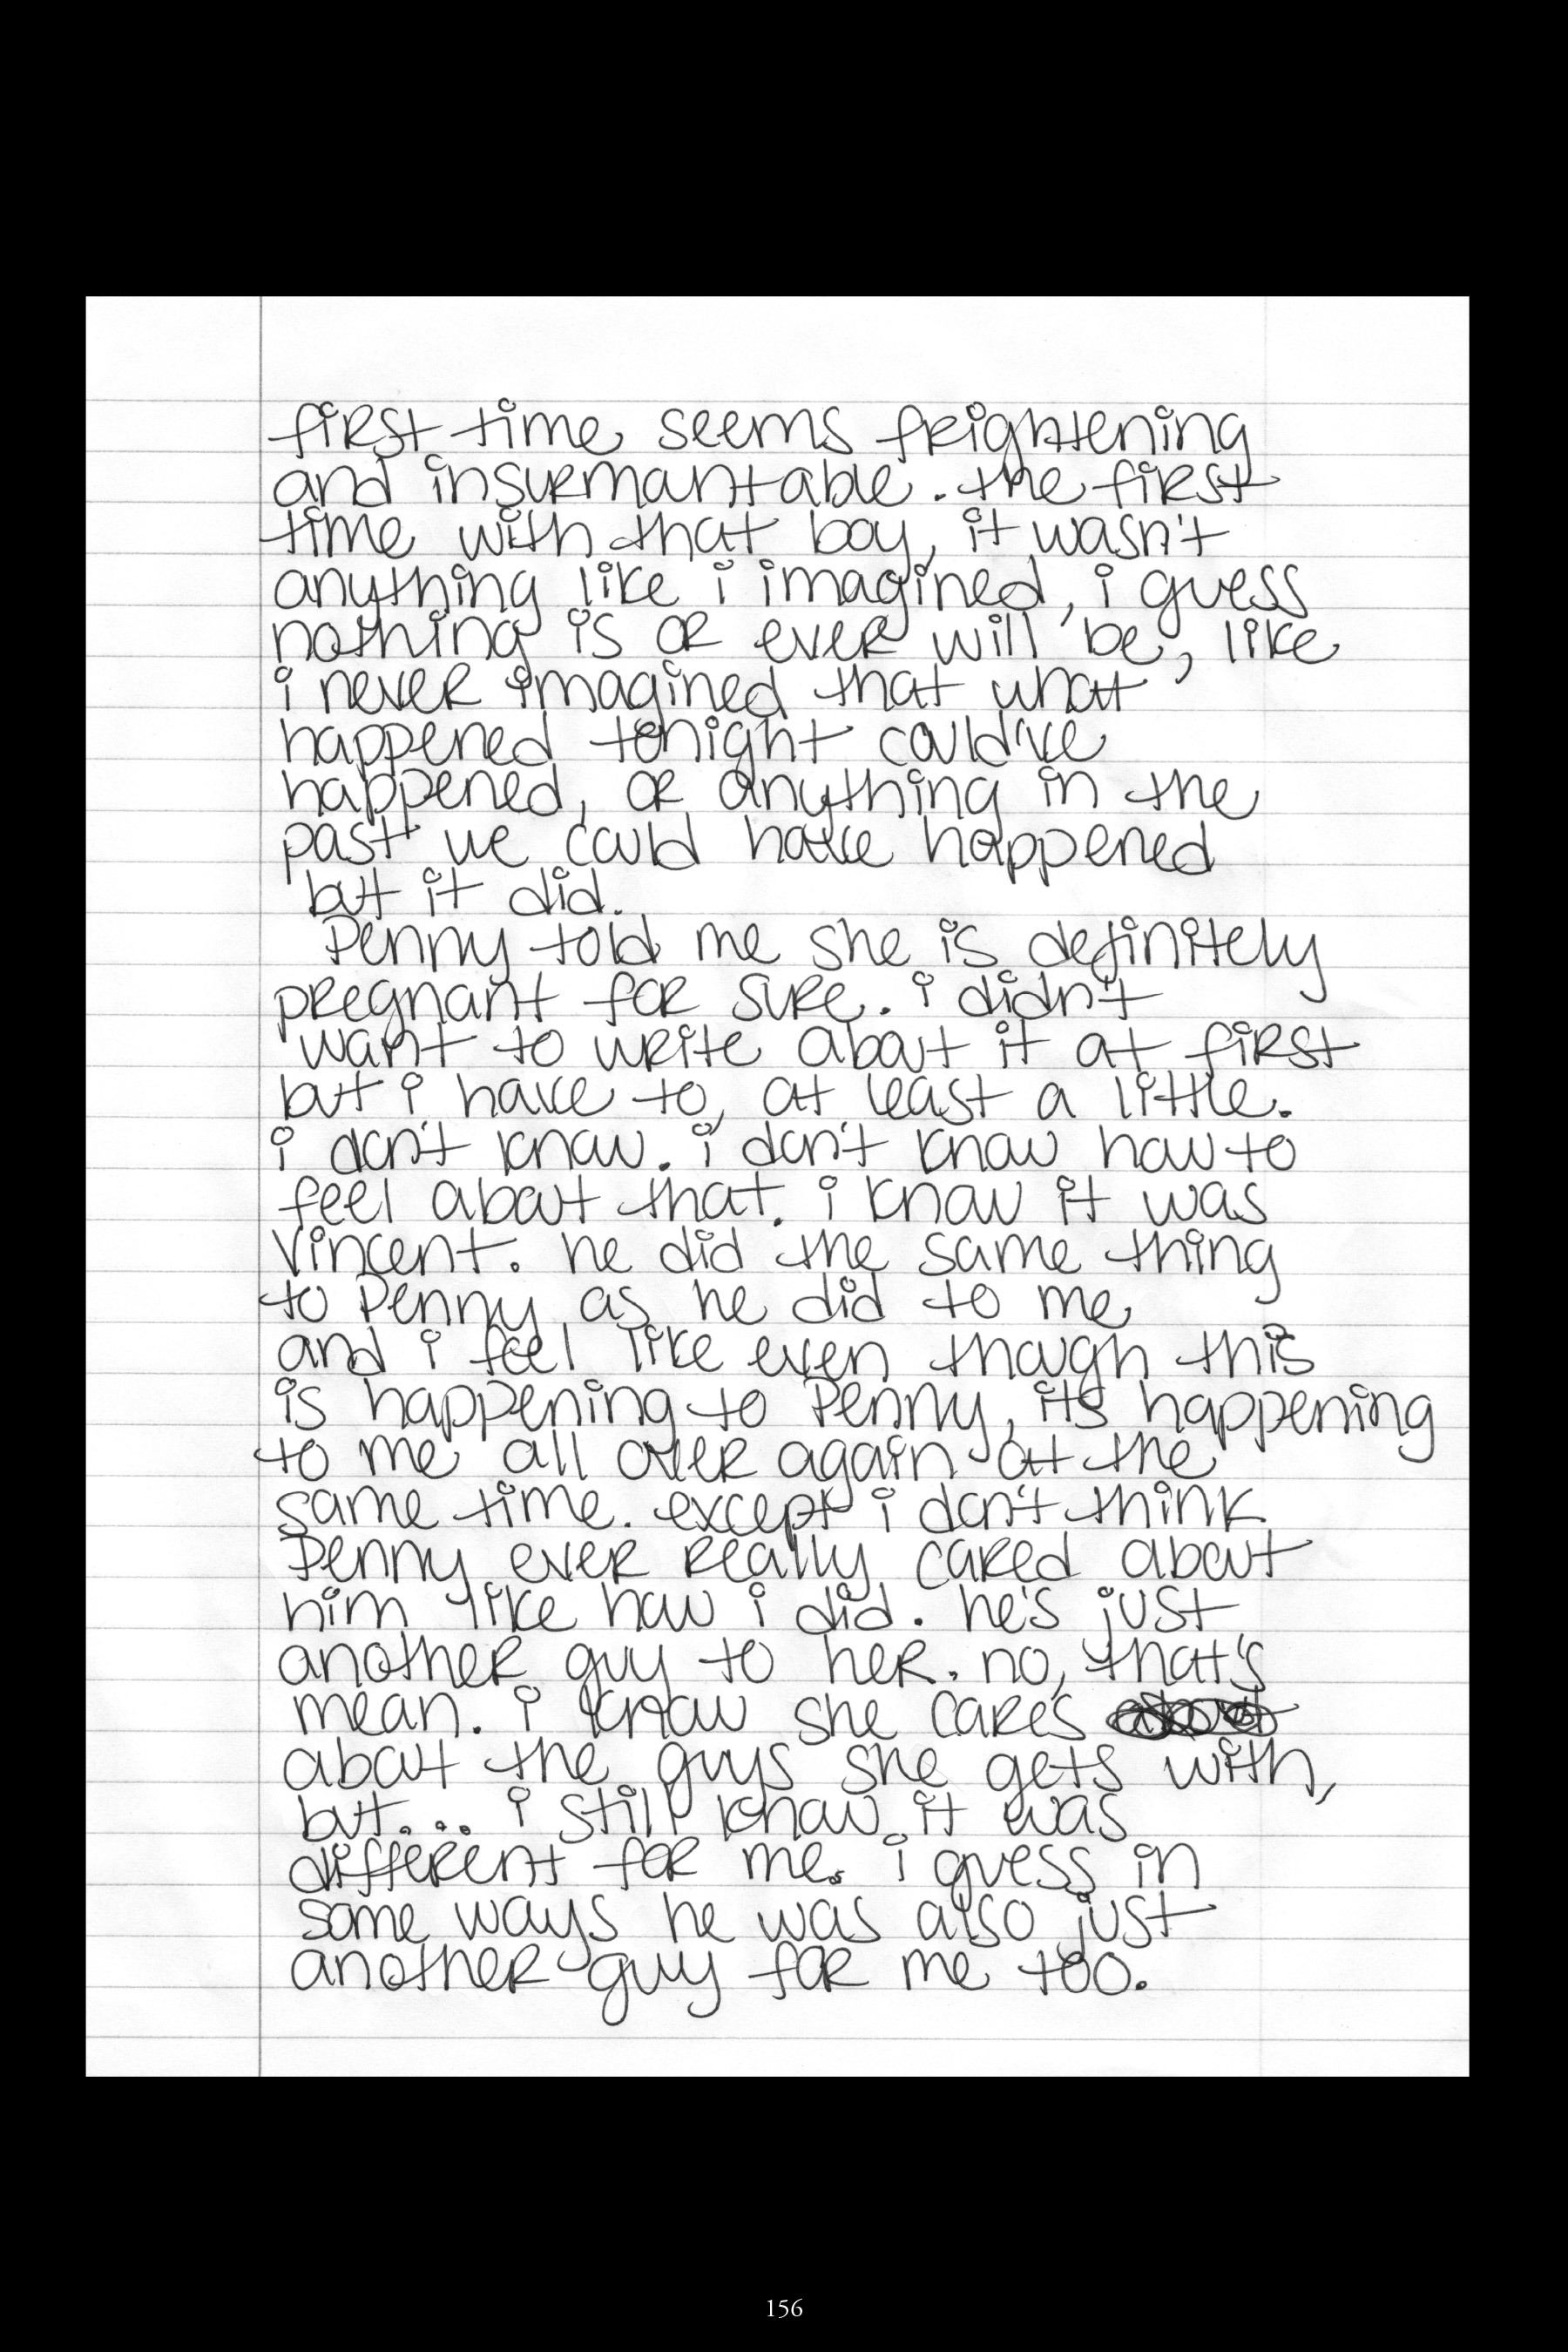 first time seems frightening
and insurmantable. the first
time with that boy, it wasn't
anything like i imagined, i guess
nothing is or ever will be, like
i never imagined that what
happened tonight could've
happened, or anything in the
past we could have happened
but it did.
Penny told me she is definitely
pregnant for sure. i didn't
want to write about it at first
but i have to, at least a little.
i don't know. i don't know how to
feel about that. i know it was
Vincent. he did the same thing
to Penny as he did to me
and i feel like even though this
is happening to Penny, its happening
to me all over again at the
same time. except i don't think
Penny ever really cared about
him like how i did. he's just
another guy to her. no, that's
mean. i know she cares
about the guys she gets with,
but... i still know it was
different for me. i guess in
some ways he was also just
another guy for me too.
156